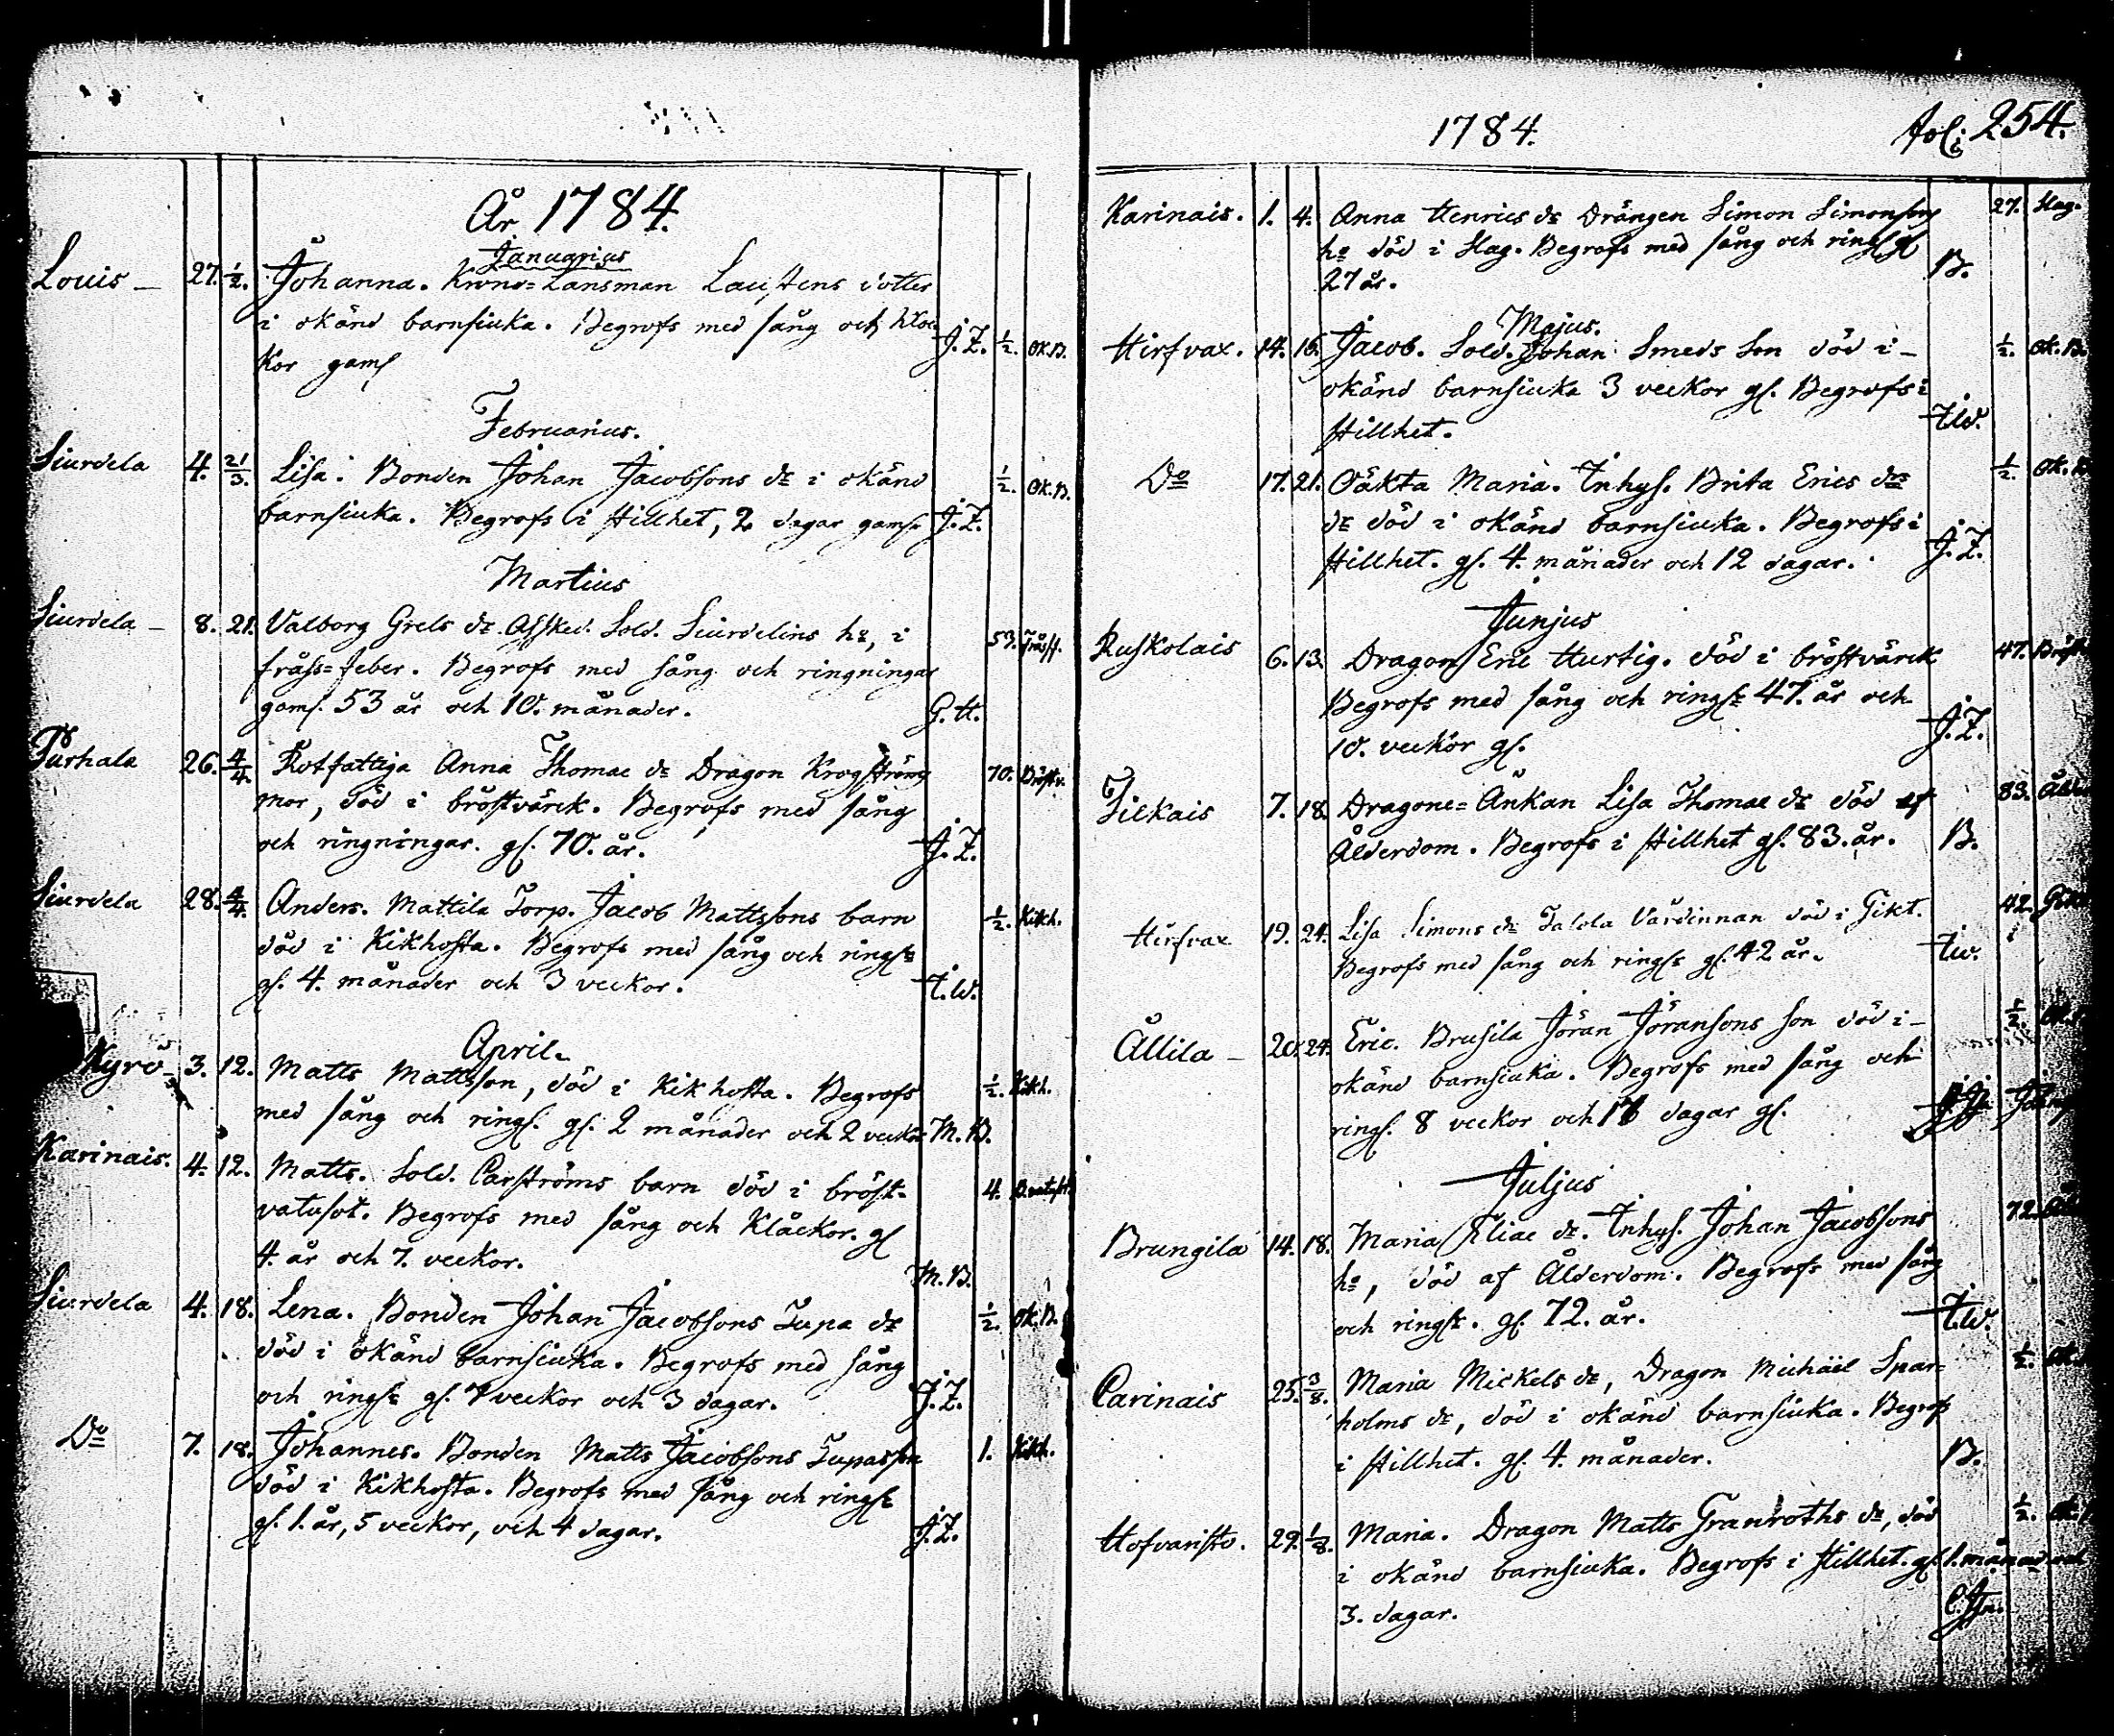 År 1784.
Januarius
Louis – 27. 1/2. Johanna. Krono=Länsman Laustens dotter
i okänd barnsiuka. Begrofs med sång och kloc
kor gaml J.Z. 1/2. Ok.B.
Februarius.
Siurdela 4. 21/3. Lisa. Bonden Johan Jacobsons dr i okänd 1/2. Ok.B.
barnsiuka. Begrofs i stillhet, 2 dagar gaml. J.Z.
Martius
Siurdela – 8. 21. Valborg Grels dr. Afsked. Sold. Siurdelins ho, i 53. Fråssf.
fråss=feber. Begrofs med sång och ringningar
gaml. 53 år och 10. månader. G.H.
Turhala 26. 4/4. Rotfattiga Anna Thomae dr Dragon Krogströms 70. Bröstv.
mor, död i bröstvärck. Begrofs med sång
och ringningar. gl. 70. år. J.Z.
Siurdela 28. 4/4. Anders. Mattila Torp. Jacob Mattssons barn 1/2. Kikh.
död i Kikhosta. Begrofs med sång och ringgr
gl. 4. månader och 3 veckor. I.W.
April.
Kyrö – 3. 12. Matts Mattsson, död i Kikhosta. Begrofs 1/2. Kikh.
med sång och ringg. gl. 2 månader och 2 veckor M.B.
Karinais. 4. 12. Matts. Sold. Carströms barn död i bröst= 4. B.vatusot.
vatusot. Begrofs med sång och Klåckor. gl
4. år och 7. veckor. M.B.
Siurdela 4. 18. Lena. Bonden Johan Jacobsons Tupa dr 1/2. Ok.B.
död i okänd barnsiuka. Begrofs med sång
och ringgr gl. 7 veckor och 3 dagar. J.Z.
Do 7. 18. Johannes. Bonden Matts Jacobsons Tupas son 1. Kikh.
död i Kikhosta. Begrofs med sång och ringgr
gl. 1. år, 5 veckor, och 4 dagar. J.Z.
1784. fol: 254.
Karinais. 1. 4. Anna Henrics dr Drängen Simon Simonsons 27. Hag.
ho död i Hag. Begrofs med sång och ringg gl
27 år. B.
Majus.
Hirfvax. 14. 16. Jacob. Sold. Johan Smeds son död i – 1/2. Ok.B.
okänd barnsiuka 3 veckor gl. Begrofs i
stillhet. I.W.
Do 17. 21. Oäkta Maria. Inhys. Brita Erics drs 1/2. Ok.
dr död i okänd barnsiuka. Begrofs i
stillhet. gl. 4. månader och 12 dagar. J.Z.
Junjus
Ruskolais 6. 13. Dragon Eric Hurtig. död i bröstvärck 47. Bröst
Begrofs med sång och ringgr 47. år och
10. veckor gl. J.Z.
Tilkais 7. 18. Dragone=Änkan Lisa Thomae dr död af 83. Ålder
Ålderdom. Begrofs i stillhet gl. 83. år. B.
Hirfvax 19. 24. Lisa Simons dr Talola Värdinnan död i Gikt. 42. Gikt
Begrofs med sång och ringgr gl. 42 år. I.W.
Ållila – 20. 24. Eric. Brusila Jöran Jöransons son död i – 1/2.
okänd barnsiuka. Begrofs med sång och
ringg. 8 veckor och 17 dagar gl.
Juljus
Brungila 14. 18. Maria Eliae dr. Inhys. Johan Jacobsons 72.
ho, död af Ålderdom. Begrofs med sång
och ringgr. gl. 72. år. I.W.
Carinais 25. 3/8. Maria Mickels dr, Dragon Michäel Spar= 1/2. Ok.
holms dr, död i okänd barnsiuka. Begrofs
i stillhet. gl. 4. månader. B.
Hofvansto. 29. 1/8. Maria. Dragon Matts Granroths dr, död 1/2. Ok.
i okänd barnsiuka. Begrofs i stillhet. gl. 1. månad och
3. dagar.